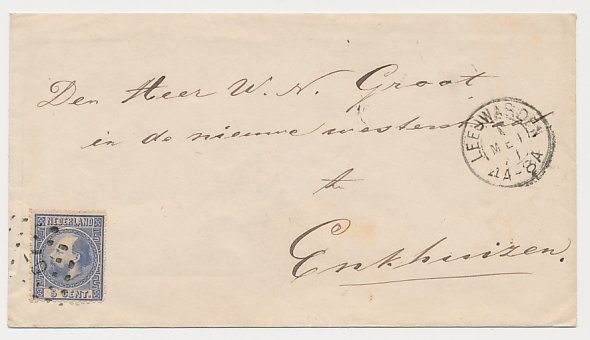 Den Heer W. N. Groot
in de nieuwe westerst
te
Enkhuizen.
LEEUWARDEN
MEI
4A-8A
NEDERLAND
5 CENT.